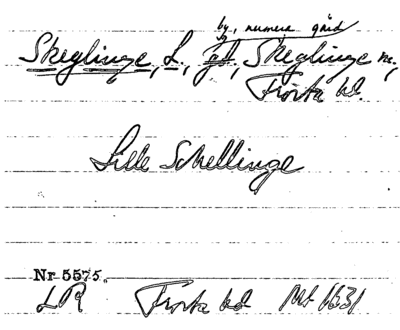 by, numera gård
Skeglinge, L., gd, Skeglinge sn,
Frosta hd.
Lille Schellinge
Nr 5575.
LR Frosta hd Mt 1631